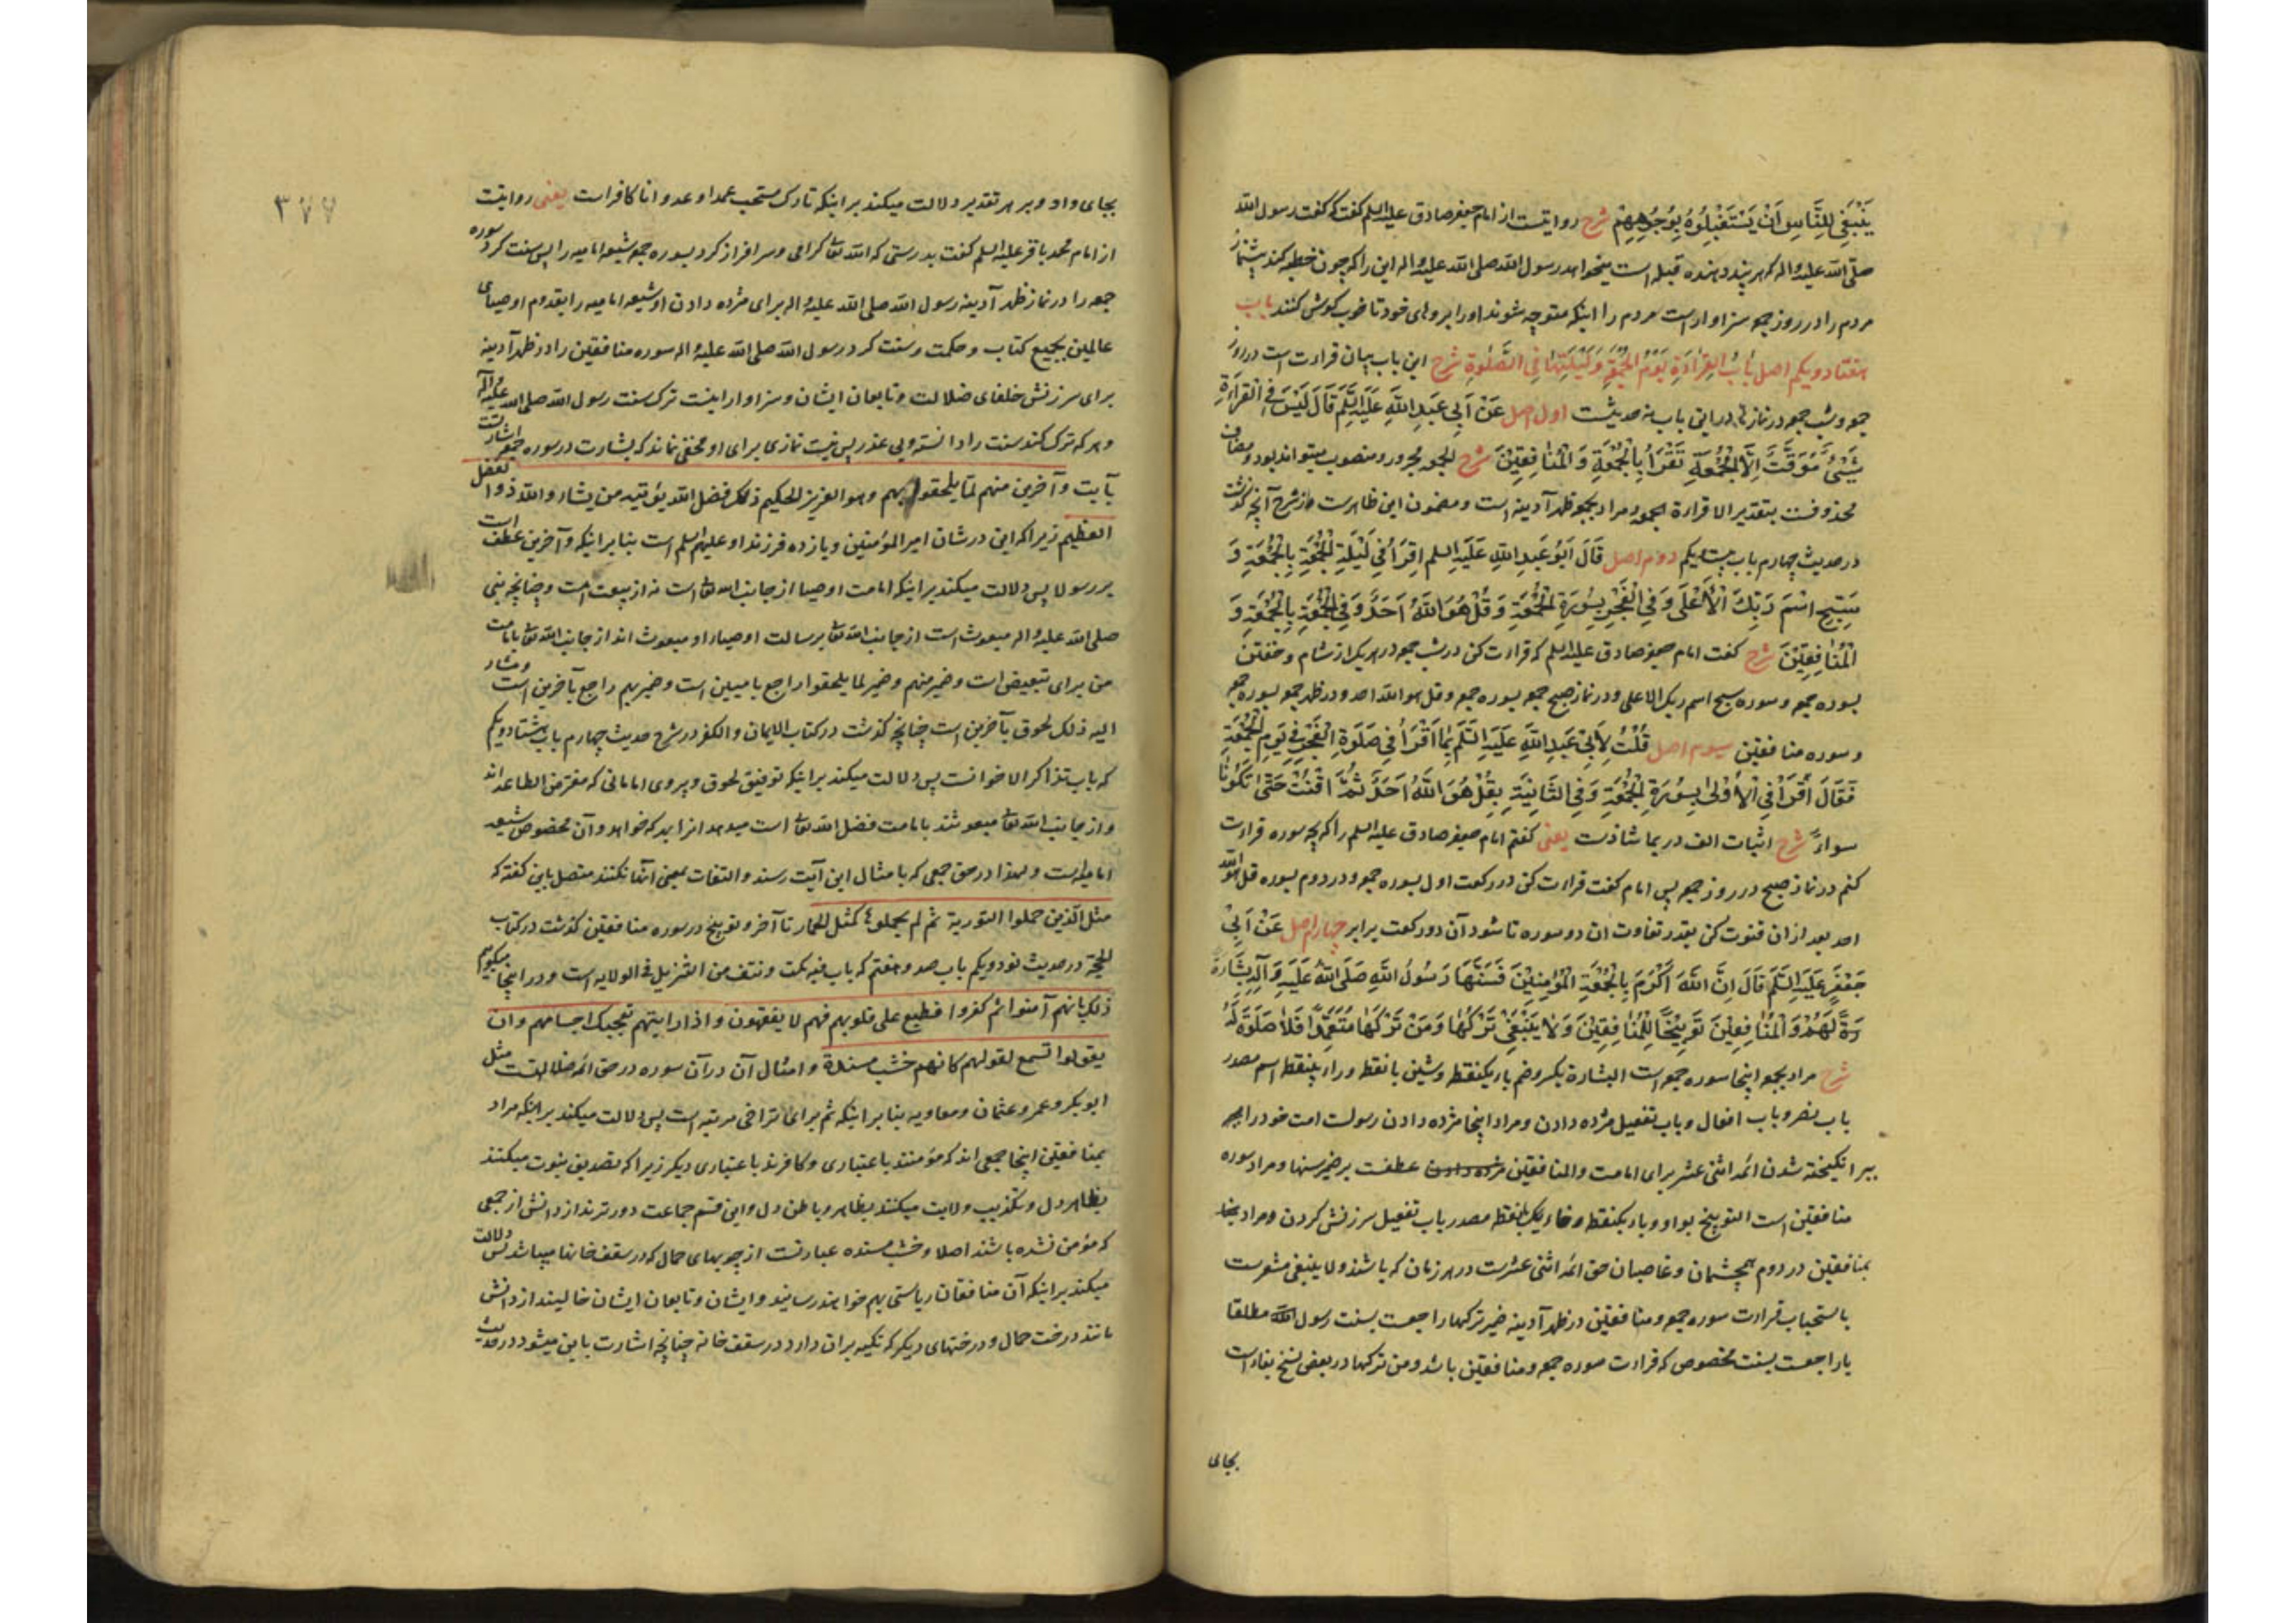 يَنْبَغِي لِلنَّاسِ أَنْ يَسْتَقْبِلُوهُ بِوُجُوهِهِمْ شرح روایتست از امام جعفر صادق علیه السلم گفت که گفت رسول الله
صلی الله علیه واله که هر پند دهنده قبله است میخواهد رسول الله صلی الله علیه واله این را که چون خطبه کند
مردم را در روز جمعه سزاوار است مردم را اینکه متوجه شوند او را بروهای خود تا خوب گوش کنند باب
هفتاد ویکم اصل بَابُ الْقِرَاءَةِ يَوْمَ الْجُمُعَةِ وَلَيْلَتِهَا فِي الصَّلٰوةِ شرح این باب بیان قراءت است در روز
جمعه وشب جمعه در نماز در این باب نه حدیثست اول اصل عَنْ أَبِي عَبْدِ اللَّهِ عَلَيْهِ السَّلَمُ قَالَ لَيْسَ فِي الْقِرَاءَةِ
شَيْءٌ مُوَقَّتٌ إِلَّا الْجُمُعَةَ تُقْرَأُ بِالْجُمُعَةِ وَالْمُنَافِقِينَ شرح الجمعه مجرور ومنصوب میتواند بود ومضاف
محذوفست بتقدیر الا قراءة الجمعه ومراد بجمعه ظهر آدینه است ومضمون این ظاهرست از شرح آنچه گذشت
در حدیث چهارم باب بیست ویکم دوم اصل قَالَ أَبُو عَبْدِ اللَّهِ عَلَيْهِ السلم اقْرَأْ فِي لَيْلَةِ الْجُمُعَةِ بِالْجُمُعَةِ وَ
سَبِّحِ اسْمَ رَبِّكَ الْأَعْلَى وَفِي الْفَجْرِ بِسُورَةِ الْجُمُعَةِ وَقُلْ هُوَ اللَّهُ أَحَدٌ وَفِي الْجُمُعَةِ بِالْجُمُعَةِ وَ
الْمُنَافِقِينَ شرح گفت امام جعفر صادق علیه السلم که قراءت کن در شب جمعه در هر یک از شام وخفتن
بسوره جمعه وسوره سبح اسم ربک الاعلی ودر نماز صبح جمعه بسوره جمعه وقل هو الله احد ودر ظهر جمعه بسوره جمعه
وسوره منافقین سیوم اصل قُلْتُ لِأَبِي عَبْدِ اللَّهِ عَلَيْهِ السَّلَمُ بِمَا أَقْرَأُ فِي صَلَوةِ الْفَجْرِ فِي يَوْمِ الْجُمُعَةِ
فَقَالَ اقْرَأْ فِي الْأُولَى بِسُورَةِ الْجُمُعَةِ وَفِي الثَّانِيَةِ بِقُلْ هُوَ اللَّهُ أَحَدٌ ثُمَّ اقْنُتْ حَتَّى تَكُونَا
سواءً شرح اثبات الف در بما شاذست یعنی گفتم امام جعفر صادق علیه السلم را که بچه سوره قراءت
کنم در نماز صبح در روز جمعه پس امام گفت قراءت کن در رکعت اول بسوره جمعه ودر دوم بسوره قل هو الله
احد بعد ازان قنوت کن بقدر تفاوت ان دو سوره تا شود آن دو رکعت برابر چهارم اصل عَنْ أَبِي
جَعْفَرٍ عَلَيْهِ السَّلَمُ قَالَ إِنَّ اللَّهَ أَكْرَمَ بِالْجُمُعَةِ الْمُؤْمِنِينَ فَسَنَّهَا رَسُولُ اللَّهِ صَلَّى اللَّهُ عَلَيْهِ وَآلِهِ بِشَارَةً
لَهُمْ وَالْمُنَافِقِينَ تَوْبِيخًا لِلْمُنَافِقِينَ وَلَا يَنْبَغِي تَرْكُهَا وَمَنْ تَرَكَهَا مُتَعَمِّدًا فَلَا صَلَوةَ لَهُ
شرح مراد بجمعه اینجا سوره جمعه است البشارة بکسر وضم باء یکنقطه وشین با نقطه وراء بینقطه اسم مصدر
باب نصر وباب افعال وباب تفعیل مژده دادن ومراد اینجا مژده دادن رسولست امت خود را
ببر انگیخته شدن ائمه اثنی عشر برای امامت والمنافقین عطفست بر ضمیر سنها ومراد سوره
منافقین است التوبیخ بواو وباء یکنقطه وخاء بانقطه مصدر باب تفعیل سرزنش کردن ومراد
بمنافقین در دوم همچشمان وغاصبان حق ائمه اثنی عشرست در هر زمان که باشند ولا ینبغی مشعرست
باستحباب قراءت سوره جمعه ومنافقین در ظهر آدینه ضمیر ترکها راجعست بسنت رسول الله مطلقا
یا راجعست بسنت مخصوص که قراءت سوره جمعه ومنافقین باشد ومن ترکها در بعض نسخ بفاء است
بجای
۳۷۷
بجای واو وبر هر تقدیر دلالت میکند بر اینکه تارک مستحب عمدا وعدوانا کافر است یعنی روایتست
از امام محمد باقر علیه السلم گفت بدرستی که الله تعا گرامی وسرافراز کرد بسوره جمعه شیعه امامیه را پس سنت کرد سوره
جمعه را در نماز ظهر آدینه رسول الله صلی الله علیه اله برای مژده دادن او شیعه امامیه را بقدوم اوصیای
عالمین بجمیع کتاب وحکمت وسنت کرد رسول الله صلی الله علیه اله سوره منافقین را در ظهر آدینه
برای سرزنش خلفای ضلالت وتابعان ایشان وسزاوار اینست ترک سنت رسول الله صلی الله علیه واله
وهر که ترک کند سنت را دانسته وبی عذر پس نیست نمازی برای او مخفی نماند که بشارت در سوره جمعه اشارتست
بآیت وآخرین منهم لما یلحقوا بهم وهو العزیز الحکیم ذلک فضل الله یؤتیه من یشاء والله ذو الفضل
العظیم زیرا که این در شان امیر المؤمنین ویازده فرزند او علیهم السلم است بنا بر اینکه وآخرین عطف است
بر رسولا پس دلالت میکند بر اینکه امامت اوصیا از جانب الله تعا است نه از بیعت امت وچنانچه نبی
صلی الله علیه واله مبعوث است از جانب الله تعا برسالت اوصیاء او مبعوث اند از جانب الله تعا بامامت
من برای تبعیض است وضمیر منهم وضمیر لما یلحقوا راجع بامیین است وضمیر بهم راجع بآخرین است ومشار
الیه ذلک لحوق بآخرین است چنانچه گذشت در کتاب الایمان والکفر در شرح حدیث چهارم باب هشتاد ویکم
که باب تذاکر الاخوانست پس دلالت میکند بر اینکه توفیق لحوق وپیروی امامانی که مفترض الطاعه اند
واز جانب الله تعا مبعوثند بامامت فضل الله تعا است میدهد انرا بهر که خواهد وآن مخصوص شیعه
امامیه است ولهذا در حق جمعی که بامثال این آیت رسند والتفات بمعنی آنها نکنند متصل باین گفته که
مثل الذین حملوا التوریة ثم لم یحملوها کمثل الحمار تا آخر وتوبیخ در سوره منافقین گذشت در کتاب
الحجة در حدیث نود ویکم باب صد وهفتم که باب فیه نکت ونتف من التنزیل فی الولایه است ودر اینجا میگویم
ذلک بانهم آمنوا ثم کفروا فطبع علی قلوبهم فهم لا یفقهون واذا رایتهم تعجبک اجسامهم وان
یقولوا تسمع لقولهم کانهم خشب مسندة وامثال آن در آن سوره در حق ائمه ضلالتست مثل
ابوبکر وعمر وعثمان ومعاویه بنا بر اینکه ثم برای تراخی مرتبه است پس دلالت میکند بر اینکه مراد
بمنافقین اینجا جمعی اند که مؤمنند باعتباری وکافرند باعتباری دیگر زیرا که تصدیق نبوت میکنند
بظاهر دل وتکذیب ولایت میکنند بظاهر وباطن دل واین قسم جماعت دورترند از دانش از جمعی
که مؤمن نشده باشند اصلا وخشب مسنده عبارتست از چوبهای حمال که در سقف خانها میباشد پس دلالت
میکند بر اینکه آن منافقان ریاستی بهم خواهند رسانید وایشان وتابعان ایشان خالیند از دانش
مانند درخت حمال ودرختهای دیگر که تکیه بران دارد در سقف خانه چنانچه اشارت باین میشود در حدیث